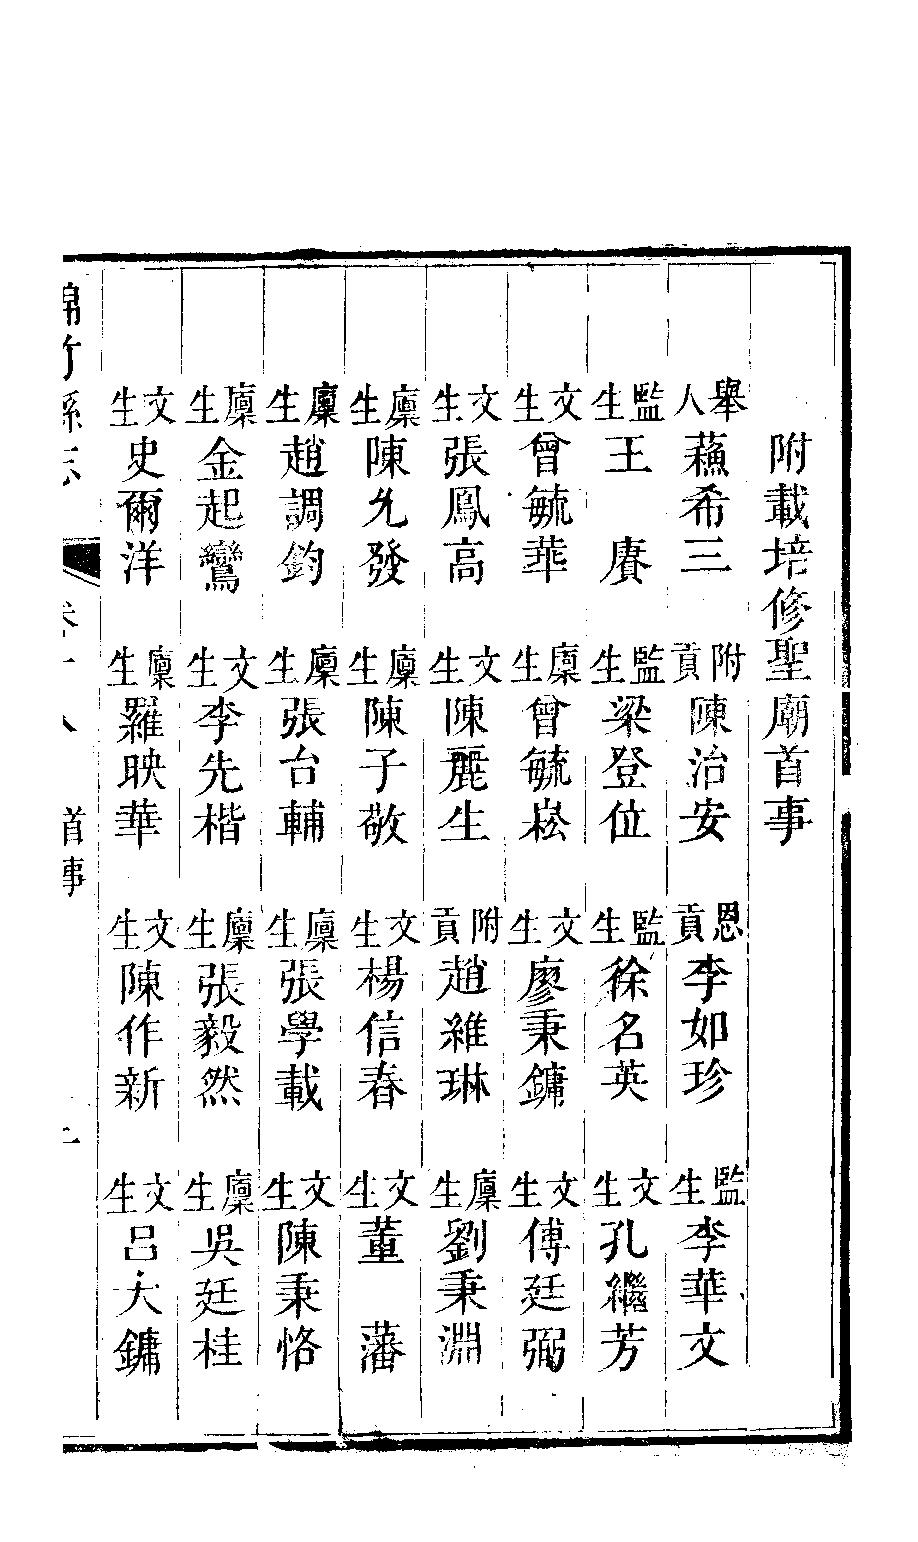 附載培修聖廟首事
舉人蘓希三 附貢陳治安 恩貢李如珍 監生李華文
監生王賡 監生梁登位 監生徐名英 文生孔繼芳
文生曾毓華 廩生曾毓崧 文生廖秉鏞 文生傅廷弼
文生張鳳高 文生陳麗生 附貢趙維琳 廩生劉秉淵
廩生陳允發 廩生陳子敬 文生楊信春 文生董藩
廩生趙調鈞 廩生張台輔 廩生張學載 文生陳秉恪
廩生金起鸞 文生李先楷 廩生張毅然 廩生吳廷桂
文生史爾洋 廩生羅映華 文生陳作新 文生呂大鏞
綿竹縣志 卷十八 首事